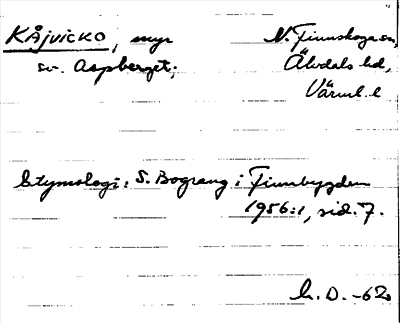 KÅJVICKO, myr
sv. Aspberget;
N. Finnskoga sn,
Älvdals hd,
Värml. l
Etymologi: S. Bograng i Finnbygden
1956:1, sid. 7.
L. D. -62